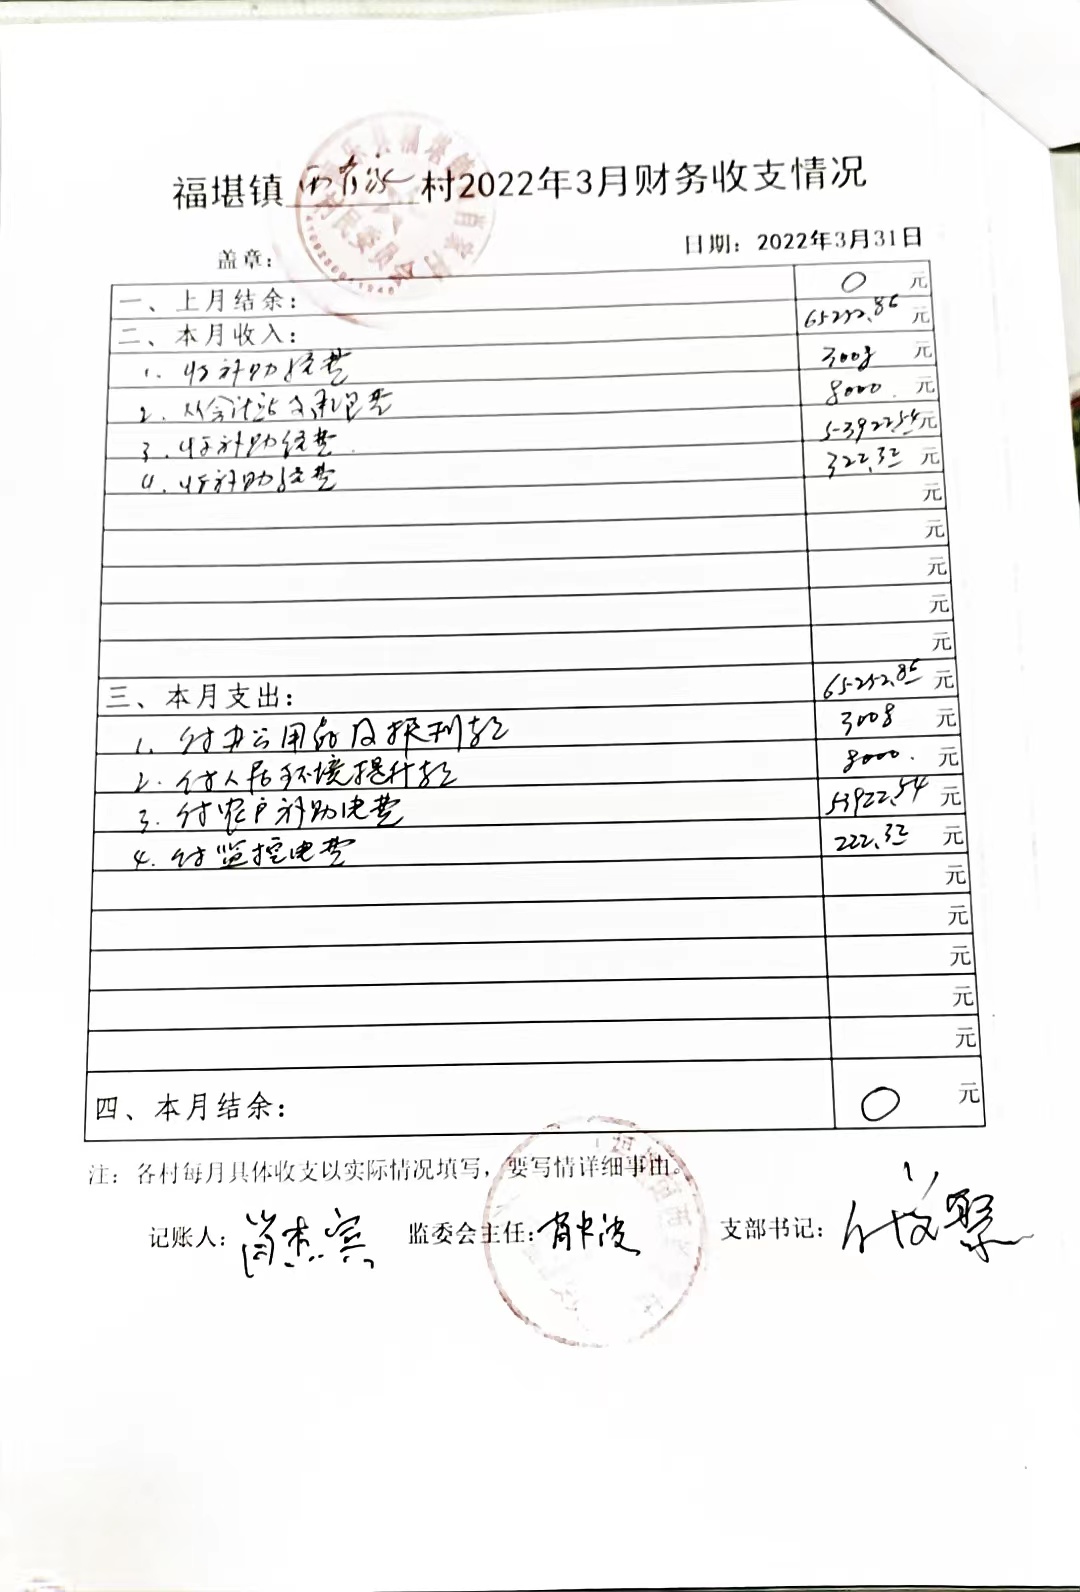 福堪镇西肖家村2022年3月财务收支情况
盖章： 日期：2022年3月31日
一、上月结余： 0 元
二、本月收入： 65252.86 元
1. 收补助经费 3008 元
2. 从会计站支 费 8000 元
3. 收补助经费 53922.54元
4. 收补助经费 322.32 元
元
元
元
元
元
三、本月支出： 65252.86 元
1. 付办公用品及报刊款 3008 元
2. 付人居环境提升款 8000. 元
3. 付农户补助电费 53922.54 元
4. 付监控电费 222.32 元
元
元
元
元
元
四、本月结余： 0 元
注：各村每月具体收支以实际情况填写，要写情详细事由。
记账人：肖杰宾 监委会主任：肖 波 支部书记：